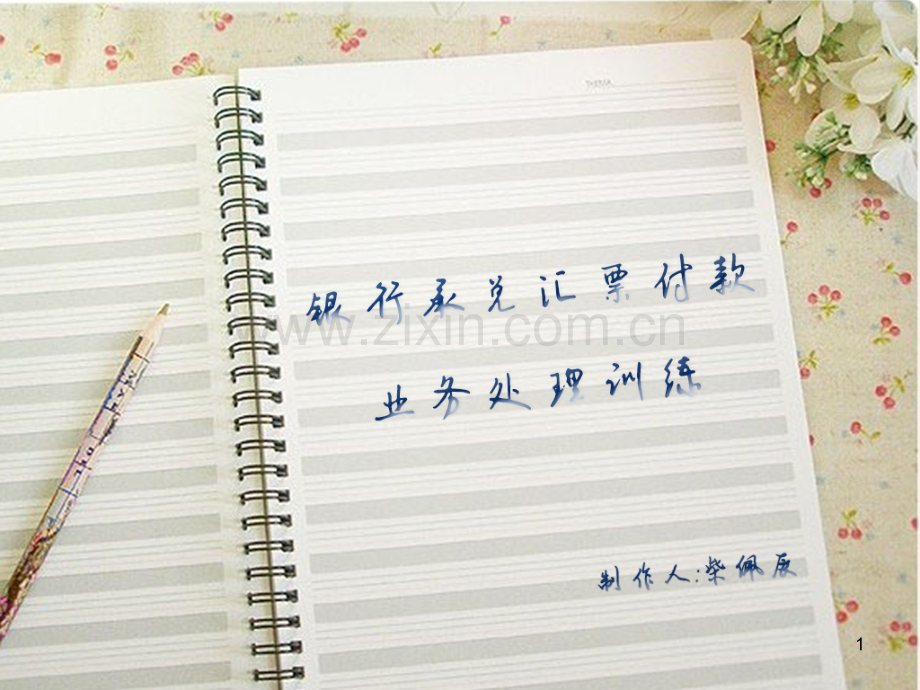 银行承兑汇票付款
www.zixin.com.cn
业务处理训练
制作人:柴佩辰
1